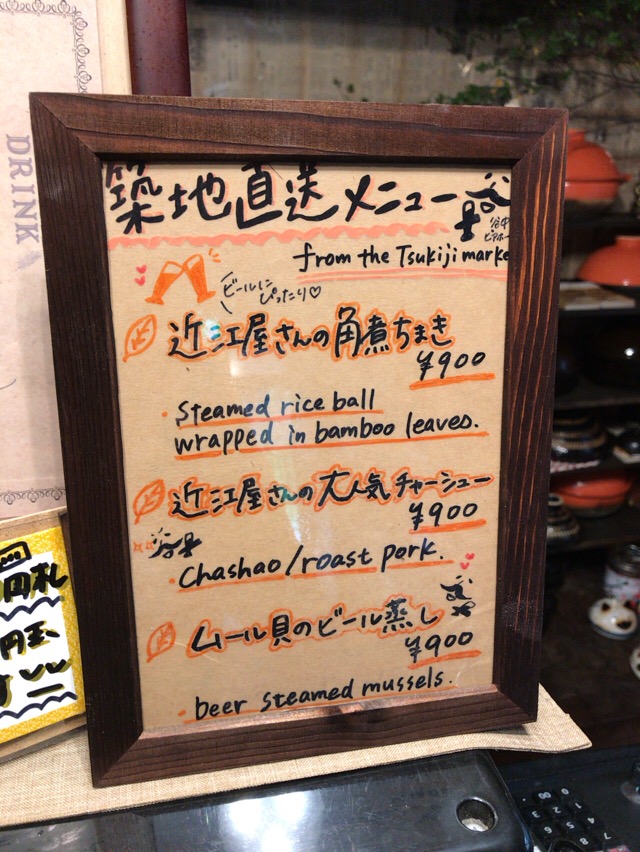 DRINK
築地直送メニュー
谷中
ビアホー
from the Tsukiji marke
ビールに
ぴったり♡
近江屋さんの角煮ちまき
¥900
・steamed rice ball
wrapped in bamboo leaves.
近江屋さんの大人気チャーシュー
¥900
・chashao/roast pork.
ムール貝のビール蒸し
¥900
・beer steamed mussels.
円札
円玉